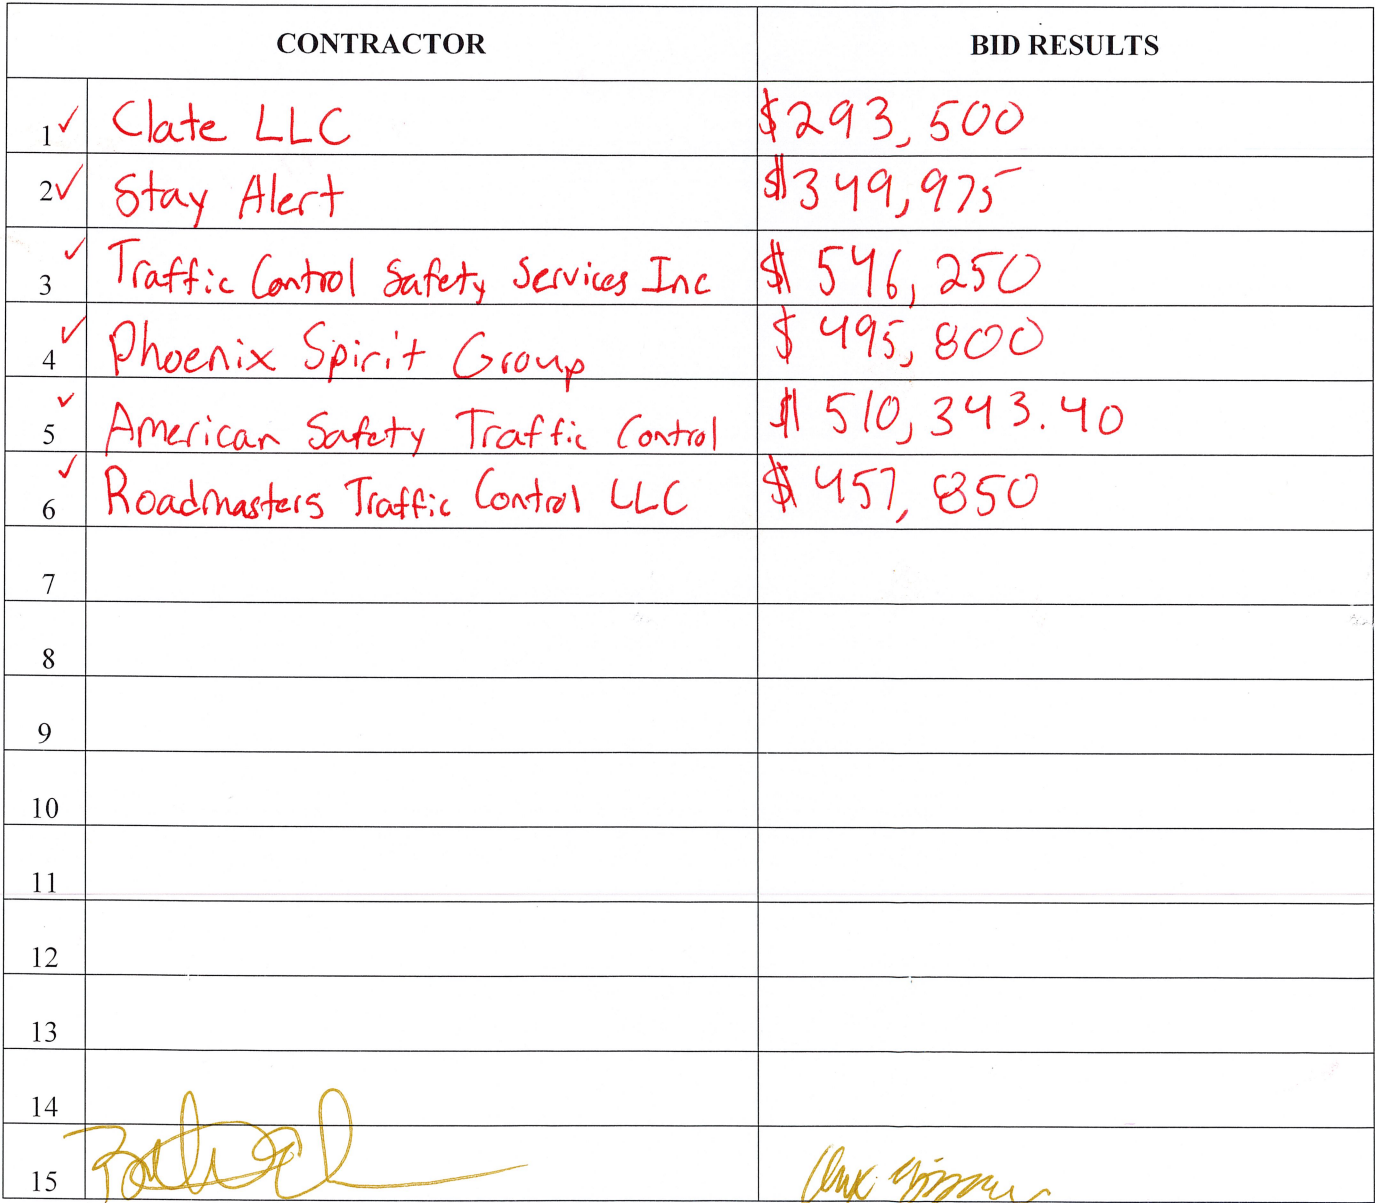 CONTRACTOR BID RESULTS
1 ✓ Clate LLC $293,500
2 ✓ Stay Alert $349,975
3 ✓ Traffic Control Safety Services Inc $546,250
4 ✓ Phoenix Spirit Group $495,800
5 ✓ American Safety Traffic Control $510,343.40
6 ✓ Roadmasters Traffic Control LLC $457,850
7
8
9
10
11
12
13
14
15